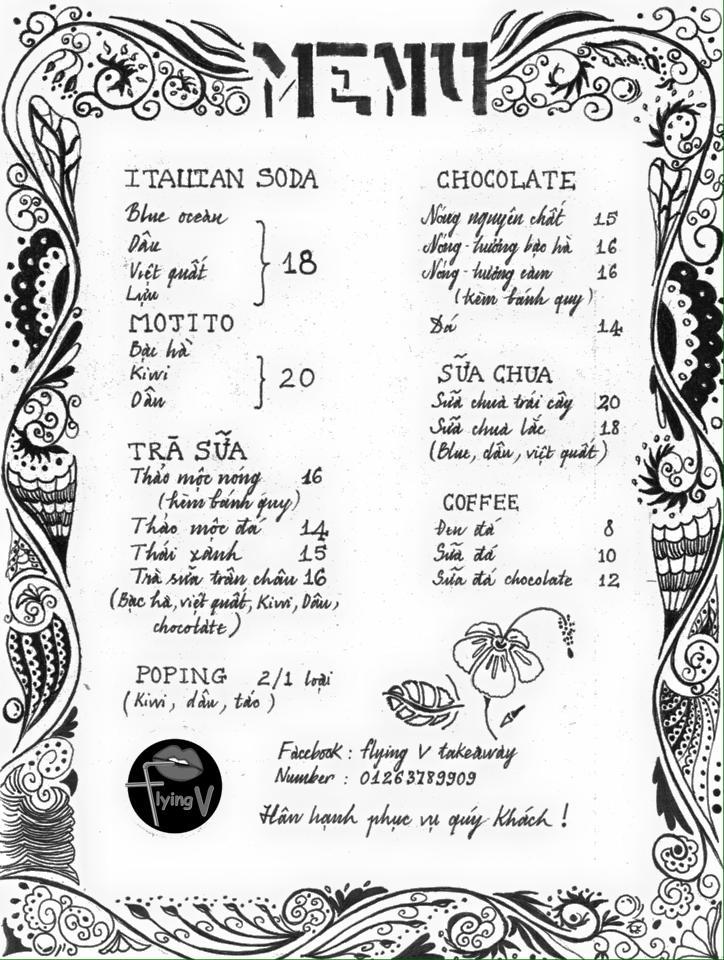 MENU
ITALIAN SODA
Blue ocean
Dâu
Việt quất
Lựu
18
MOJITO
Bạc hà
Kiwi
Dâu
20
TRÀ SỮA
Thảo mộc nóng 16
(kèm bánh quy)
Thảo mộc đá 14
Thái xanh 15
Trà sữa trân châu 16
(Bạc hà, việt quất, Kiwi, Dâu,
chocolate)
POPING 2/1 loại
(Kiwi, dâu, táo)
CHOCOLATE
Nóng nguyên chất 15
Nóng - hương bạc hà 16
Nóng - hương cam 16
(kèm bánh quy)
Đá 14
SỮA CHUA
Sữa chua trái cây 20
Sữa chua lắc 18
(Blue, dâu, việt quất)
COFFEE
Đen đá 8
Sữa đá 10
Sữa đá chocolate 12
flying V
Facebook : flying V takeaway
Number : 01263789909
Hân hạnh phục vụ quý Khách !